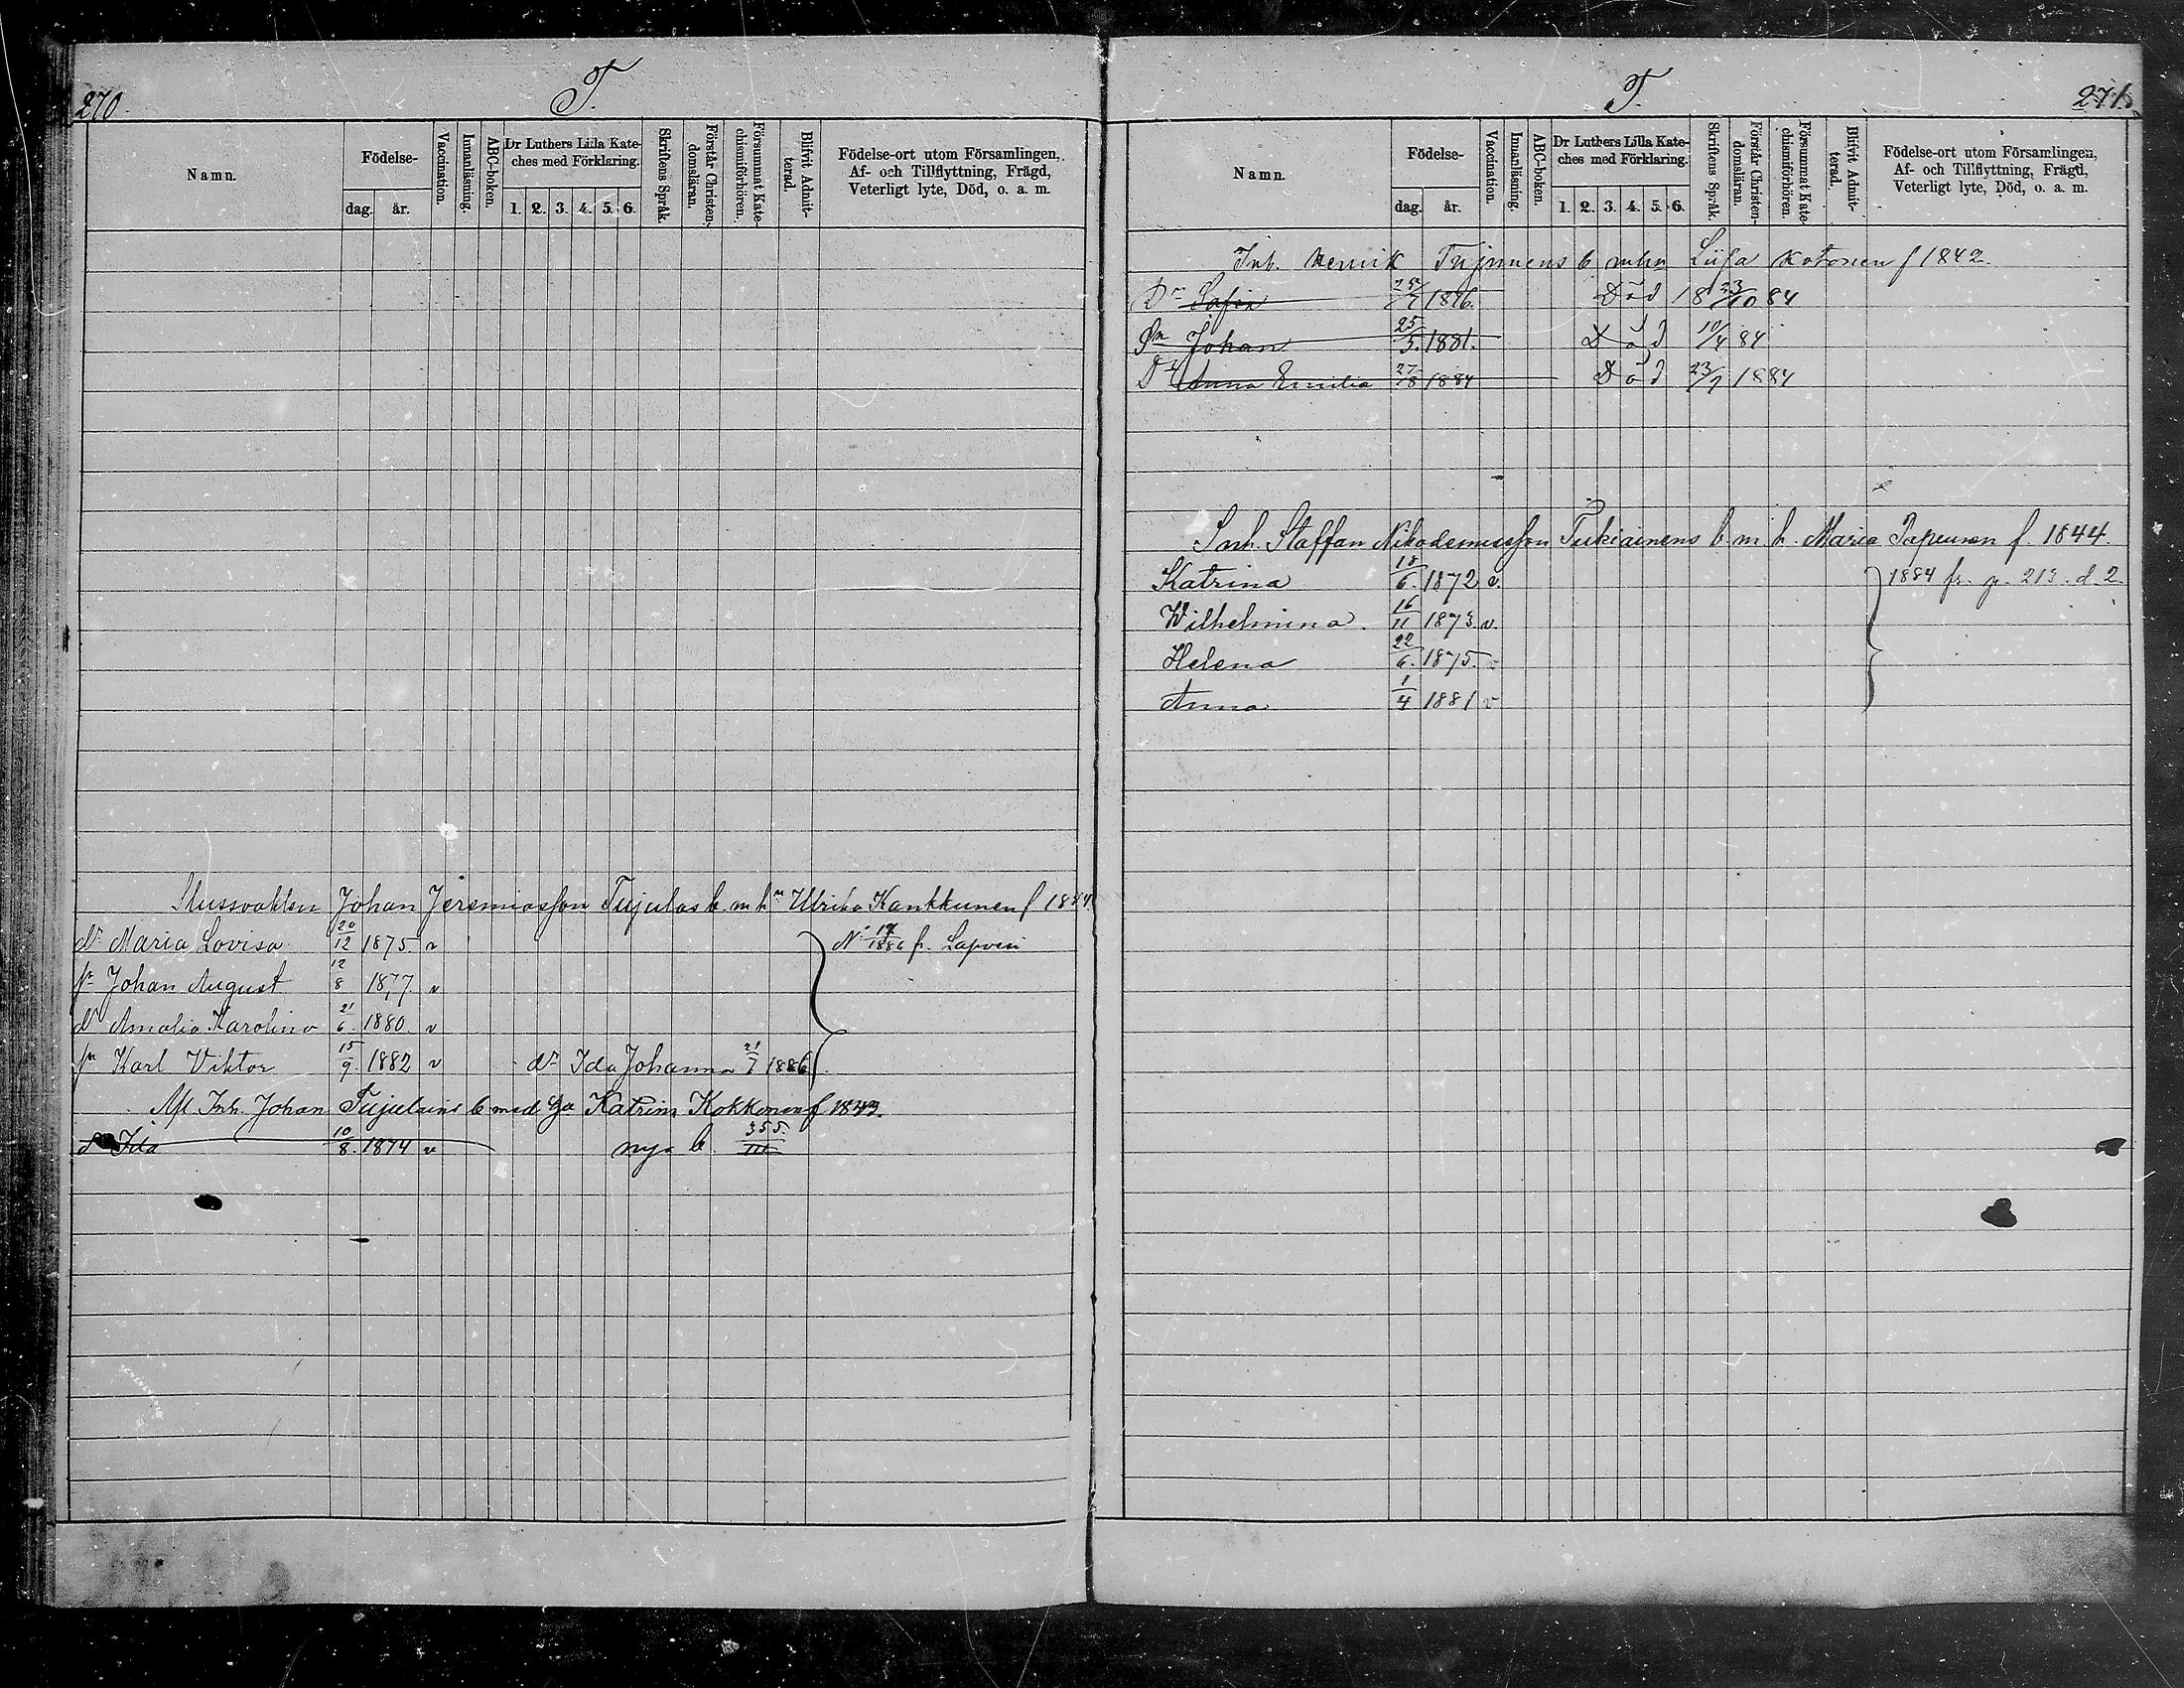 270.
T.
Namn.
Födelse-
dag.
år.
Vaccination.
Innanläsning.
ABC-boken.
Dr Luthers Lilla Kate-
ches med Förklaring.
1. 2. 3. 4. 5. 6.
Skriftens Språk.
Förstår Christen-
domsläran.
Försummat Kate-
chismiförhören.
Blifvit Admit-
terad.
Födelse-ort utom Församlingen,
Af- och Tillflyttning, Frägd,
Veterligt lyte, Död, o. a. m.
Slussvakten Johan Jeremiasson Tujulas b. m. hn Ulrika Kankkunen f 1844
dr Maria Lovisa 20/12 1875. v N: 17/1886 fr. Lapvesi
sn Johan August 12/8 1877. v
dr Amalia Karolina 21/6. 1880. v
sn Karl Viktor 15/9. 1882 v dr Ida Johanna 21/7 1886
Afl Inh. Johan Tujulains b med Ea Katrin Kokkonen f 1843.
dr Ida 10/8. 1874 v nya b. 355./III
T.
271.
Namn.
Födelse-
dag.
år.
Vaccination.
Innanläsning.
ABC-boken.
Dr Luthers Lilla Kate-
ches med Förklaring.
1. 2. 3. 4. 5. 6.
Skriftens Språk.
Förstår Christen-
domsläran.
Försummat Kate-
chismiförhören.
Blifvit Admit-
terad.
Födelse-ort utom Församlingen,
Af- och Tillflyttning, Frägd,
Veterligt lyte, Död, o. a. m.
Inh. Henrik b mhn Liisa Kotonen f 1842.
Dr Sofia 1876. Död 18 23/10 84
Sn Johan 25/5. 1881. Död 10/4 84
Dr Anna Emilia 27/8 1884 Död 23/9 1884
Inh. Staffan Nikodemusson Tukiainens b. m. h. Maria Papunen f. 1844
Katrina 18/6. 1872 v. 1884 fr. p. 213. d. 2.
Wilhelmina. 16/11 1873. v.
Helena 22/6. 1875. v
Anna 1/4 1881 v